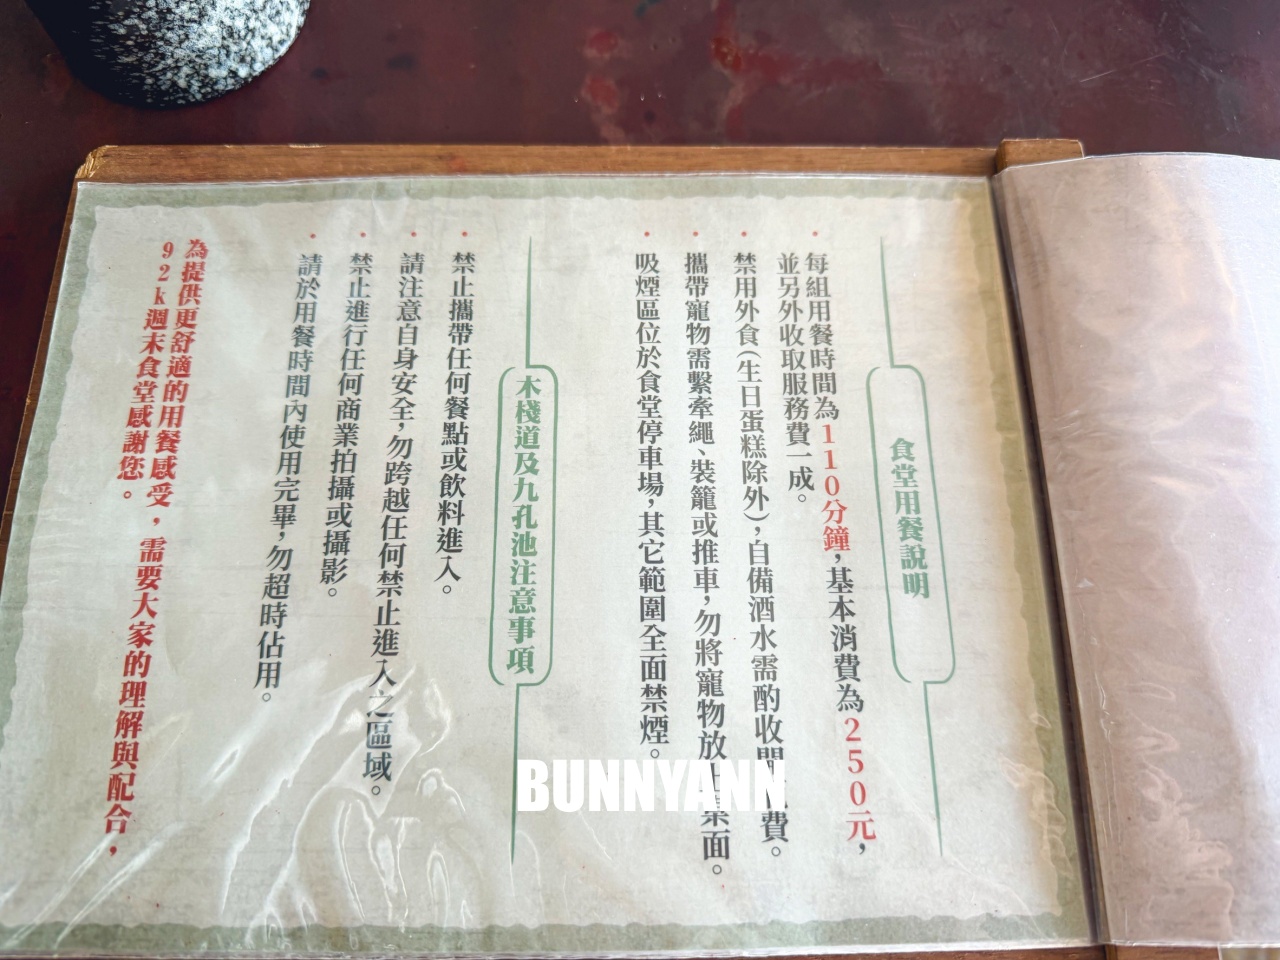 食堂用餐說明
每組用餐時間為110分鐘，基本消費為250元，
並另外收取服務費一成。
禁用外食（生日蛋糕除外），自備酒水需酌收開費。
攜帶寵物需繫牽繩、裝籠或推車，勿將寵物放上桌面。
吸煙區位於食堂停車場，其它範圍全面禁煙。
木棧道及九孔池注意事項
禁止攜帶任何餐點或飲料進入。
請注意自身安全，勿跨越任何禁止進入之區域。
禁止進行任何商業拍攝或攝影。
請於用餐時間內使用完畢，勿超時佔用。
為提供更舒適的用餐感受，需要大家的理解與配合，
92k週末食堂感謝您。
BUNNYANN